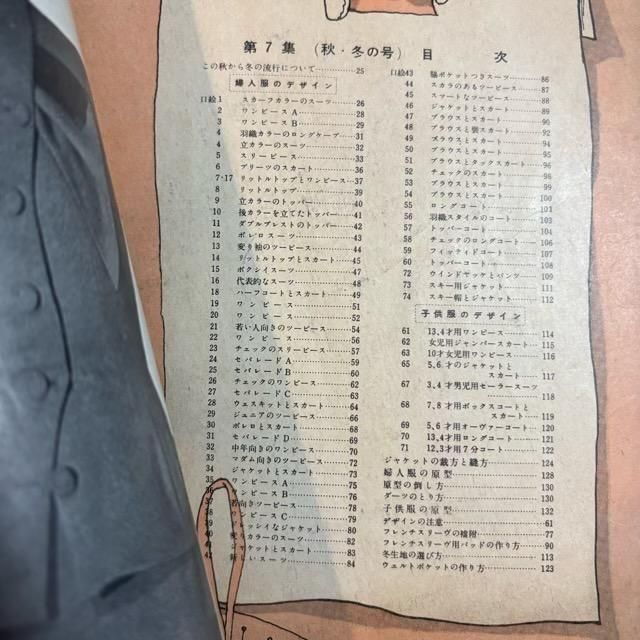 第7集 (秋・冬の号) 目次
この秋から冬の流行について…………25
婦人服のデザイン
口絵1 スカーフカラーのスーツ…………26
2 ワンピースA…………28
3 ワンピースB…………29
4 羽織カラーのロングケープ…………31
4 立カラーのスーツ…………32
5 スリーピース…………33
6 プリーツのスカート…………36
7・17 リットルトップとワンピース…………37
8 リットルトップ…………39
9 立カラーのトッパー…………40
10 後カラーを立てたトッパー…………41
11 ダブルブレストのトッパー…………42
12 ボレロスーツ…………43
13 変り袖のツーピース…………44
14 リットルトップとスカート…………45
15 ボクシイスーツ…………47
16 代表的なスーツ…………48
18 ハーフコートとスカート…………49
19 ワンピース…………51
20 ワンピース…………52
21 若い人向きのツーピース…………54
22 ワンピース…………56
23 チェックのスリーピース…………57
24 セパレードA…………58
25 セパレードB…………60
26 チェックのワンピース…………62
27 セパレードC…………63
28 ウェスキットとスカート…………64
29 ジュニアのツーピース…………66
30 ボレロとスカート…………68
31 セパレードD…………69
32 中年向きのワンピース…………70
33 マダム向きのツーピース…………72
34 ジャケットとスカート…………73
35 ワンピースA…………75
ワンピースB…………76
若向きツーピース…………78
ワンピースC…………79
ドレッシイなジャケット…………80
変りカラーのスーツ…………82
ジャケットとスカート…………83
新しいスーツ…………84
口絵43 猫ポケットつきスーツ…………86
44 スカラのあるツーピース…………87
45 スマートなツーピース…………88
46 ジャケットとスカート…………89
47 ブラウスとスカート…………90
48 ブラウスと襞スカート…………92
49 ブラウスとスカート…………94
50 ブラウスとスカート…………95
51 ブラウスとタックスカート…………96
52 チェックのスカート…………98
53 ブラウスとスカート…………98
54 ブラウスとスカート…………99
55 ロングコート…………101
56 羽織スタイルのコート…………103
57 トッパーコート…………104
58 チェックのロングコート…………106
59 フィッテイドコート…………107
60 トッパーコート…………108
72 ウインドヤッケとパンツ…………109
73 スキー用ジャケット…………111
74 スキー帽とジャケット…………112
子供服のデザイン
61 13,4才用ワンピース…………114
62 女児用ジャンパースカート…………115
63 10才女児用ワンピース…………116
65 5,6才のジャケットと
スカート…………117
67 3,4才男児用セーラースーツ
118
68 7,8才用ボックスコートと
スカート…………119
69 5,6才用オーヴァーコート…………120
70 13,4才用ロングコート…………121
71 12,3才用7分コート…………122
ジャケットの裁方と縫方…………124
婦人服の原型…………128
原型の倒し方…………130
ダーツのとり方…………130
子供服の原型…………132
デザインの注意…………61
フレンチスリーヴの檔附…………77
フレンチスリーヴ用パッドの作り方…………90
冬生地の選び方…………113
ウェルトポケットの作り方…………123